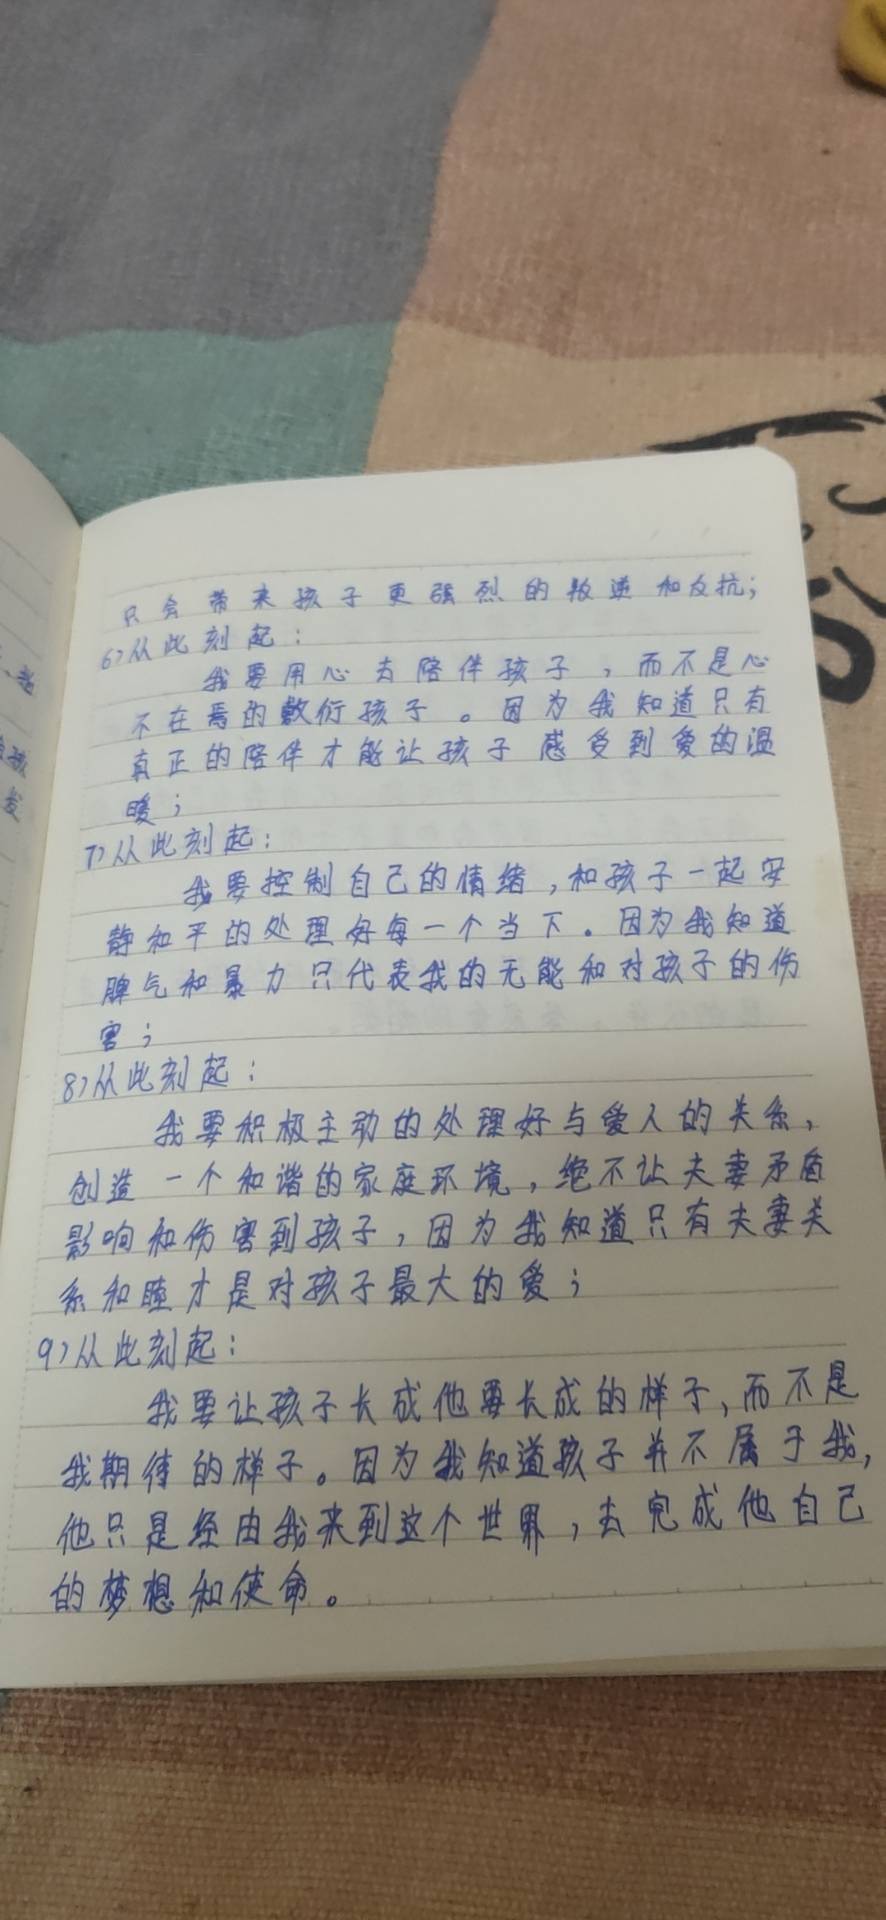 只会带来孩子更强烈的叛逆和反抗；
6）从此刻起：
我要用心去陪伴孩子，而不是心
不在焉的敷衍孩子。因为我知道只有
真正的陪伴才能让孩子感受到爱的温
暖；
7）从此刻起：
我要控制自己的情绪，和孩子一起安
静和平的处理好每一个当下。因为我知道
脾气和暴力只代表我的无能和对孩子的伤
害；
8）从此刻起：
我要积极主动的处理好与爱人的关系，
创造一个和谐的家庭环境，绝不让夫妻矛盾
影响和伤害到孩子，因为我知道只有夫妻关
系和睦才是对孩子最大的爱；
9）从此刻起：
我要让孩子长成他要长成的样子，而不是
我期待的样子。因为我知道孩子并不属于我，
他只是经由我来到这个世界，去完成他自己
的梦想和使命。